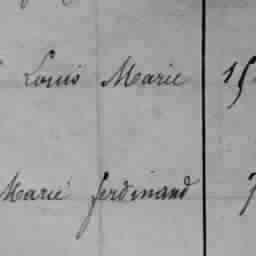 Louis Marie 15
Marie ferdinand 7